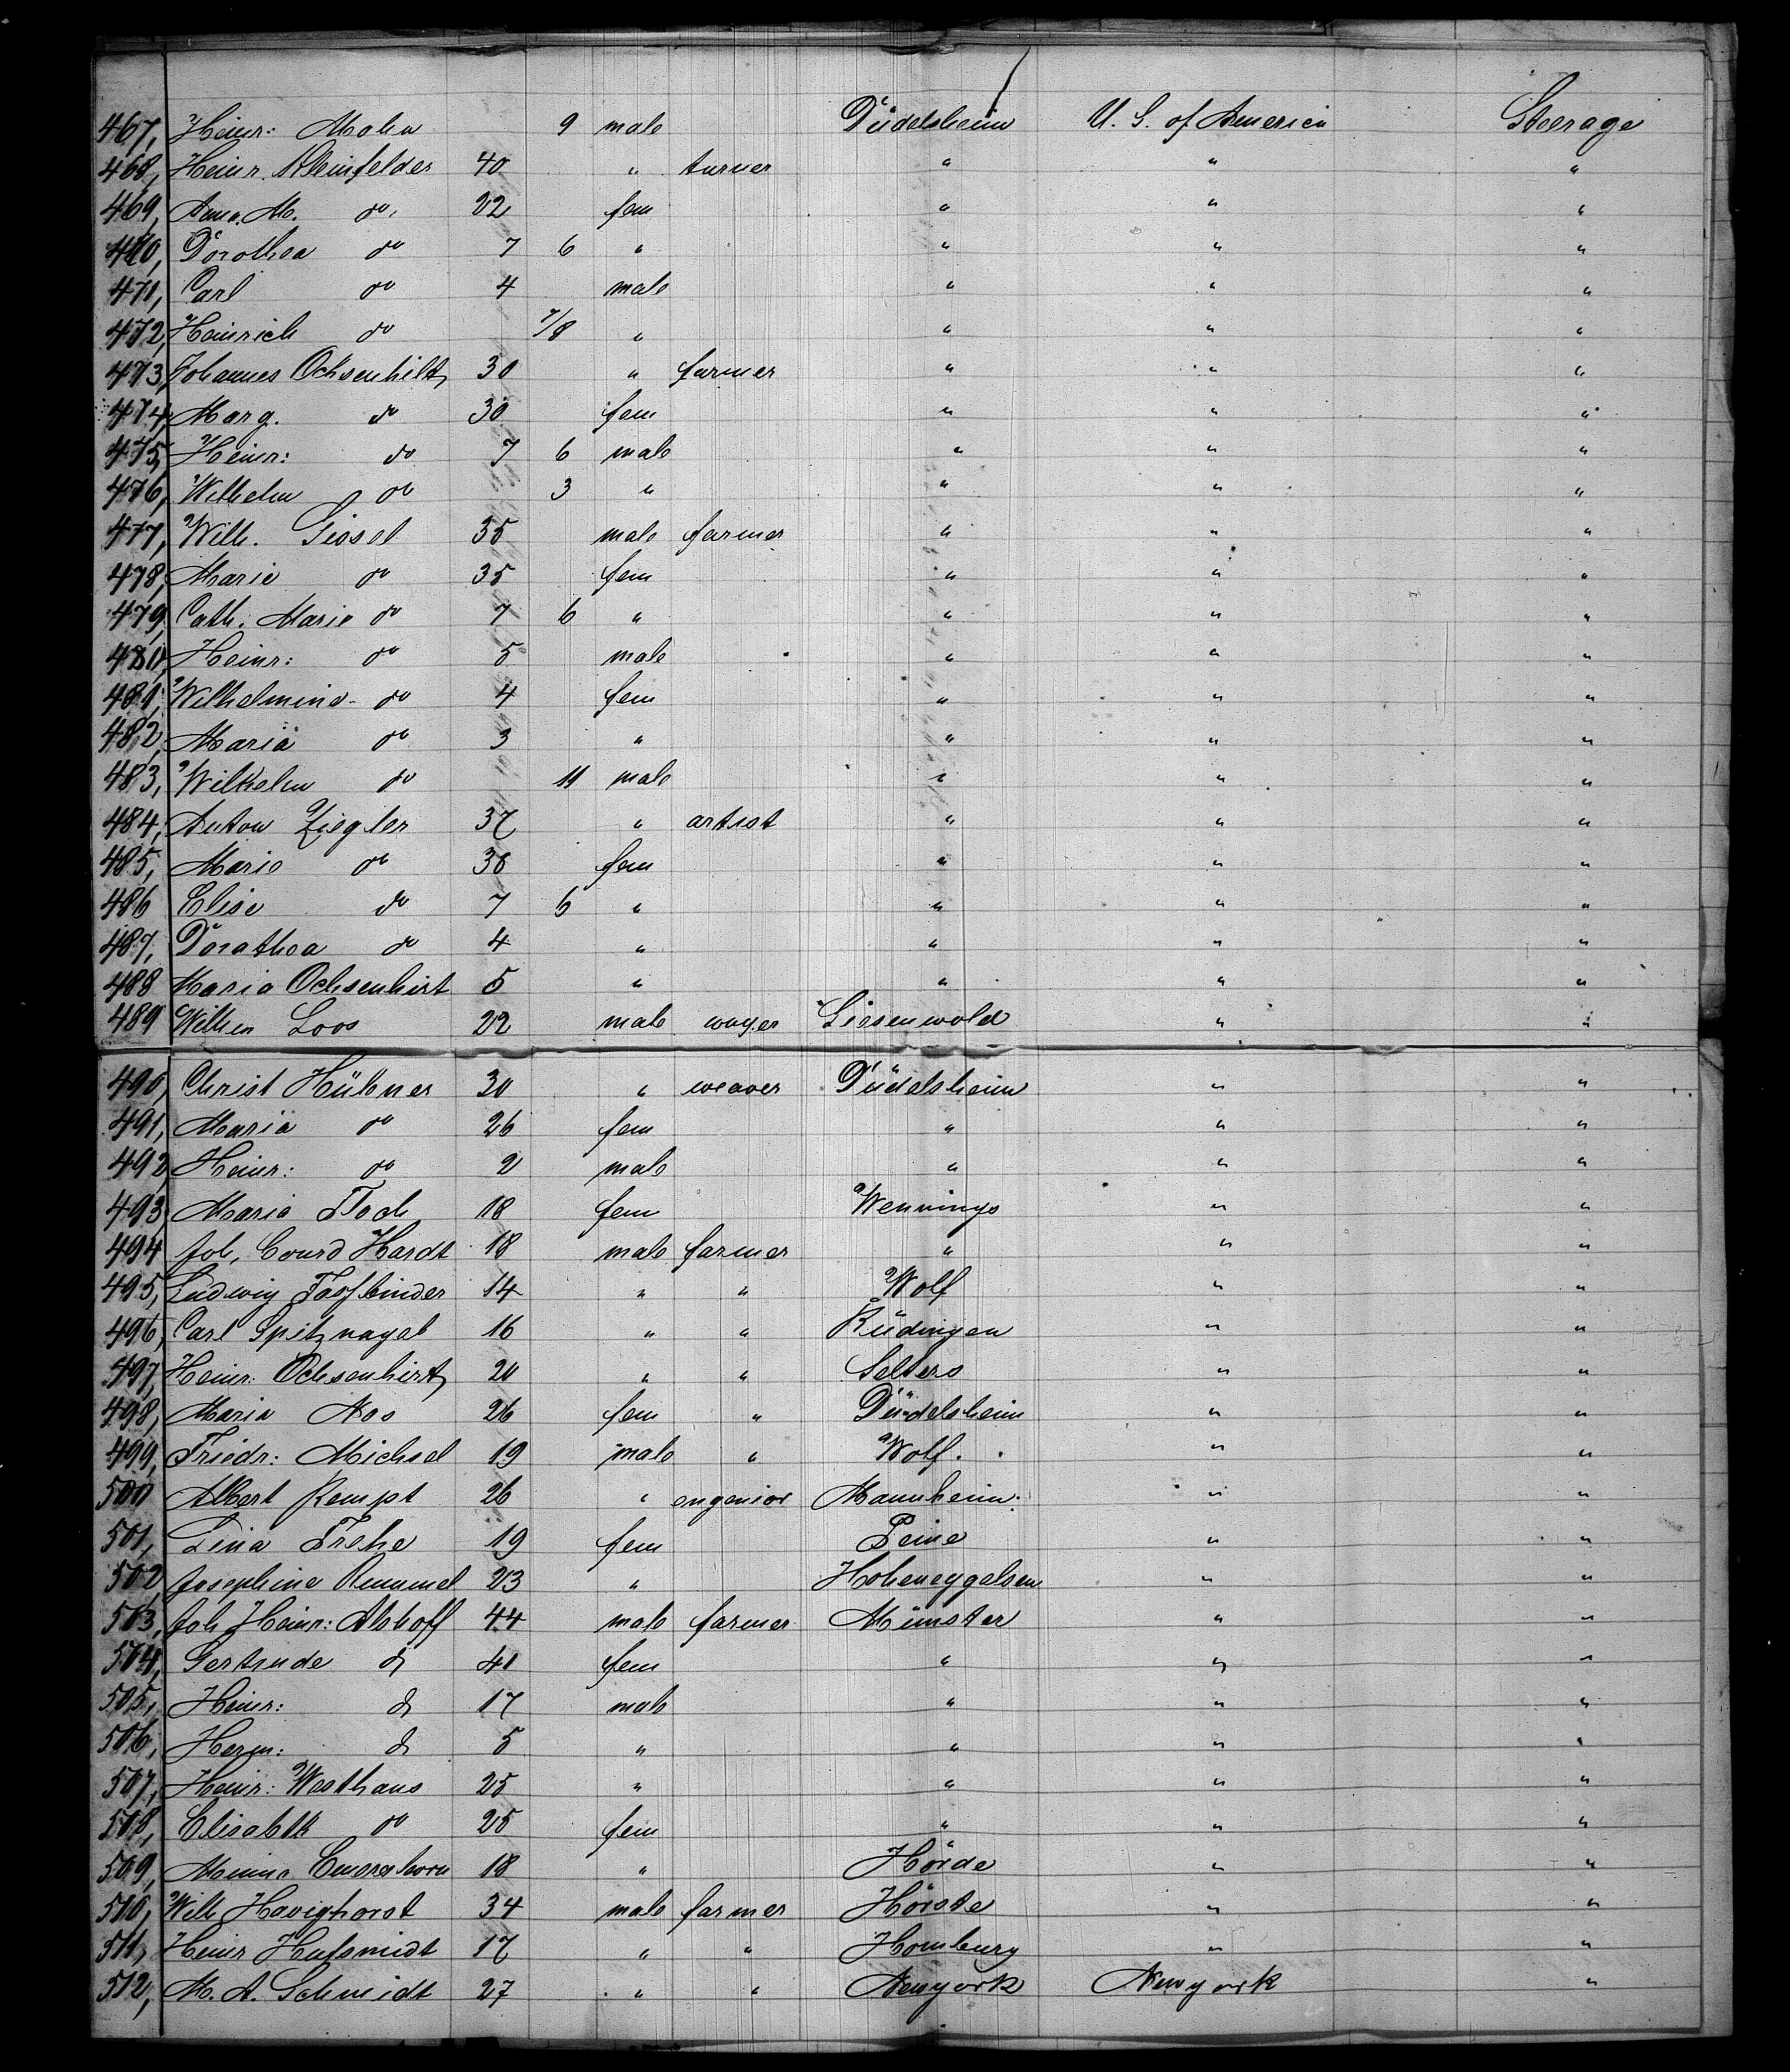 467, Heinr: Mohn 9 male Düdelsheim U. S. of America Steerage
468, Heinr. Kleinfelder 40 " turner " " "
469, Anna M. do 22 fem " " "
470, Dorothea do 7 6 " " " "
471, Carl do 4 male " " "
472, Heinrich do 7/8 " " " "
473, Johannes Ochsenhilt 30 " farmer " " "
474, Marg. do 30 fem " " "
475, Heinr: do 7 6 male " " "
476, Wilhelm do 3 " " " "
477, Wilh. 35 male farmer " " "
478, Marie do 35 fem " " "
479, Cath. Marie do 7 6 " " " "
480, Heinr: do 5 male " " "
481, Wilhelmine do 4 fem " " "
482, Maria do 3 " " " "
483, Wilhelm do 11 male " " "
484, Anton Ziegler 37 " artist " " "
485, Marie do 36 fem " " "
486 Elise do 7 6 " " " "
487, Dorathea do 4 " " " "
488 Maria Ochsenhirt 5 " " " "
489 Wilhen Loos 22 male Liesenwold " "
490, Christ Hübner 30 " weaver Düdelsheim " "
491, Maria do 26 fem " " "
492, Heinr: do 2 male " " "
493 Maria 18 fem Wennings " "
494 Joh, Conrd Hardt 18 male farmer " " "
495, Ludwig Fassbinder 14 " " Wolf " "
496, Carl Spitznagel 16 " " Büdingen " "
497, Heinr: Ochsenhirt 20 " " Selters " "
498, Maria Nos 26 fem " Düdelsheim " "
499, Friedr: Michsel 19 male " Wolf. " "
500 Albert Kempt 26 " engenior Mannheim. " "
501, Lina Frehe 19 fem Peine " "
502 Josephine Rummel 23 " Hoheneggelsen " "
503, Joh Heinr: Ahhoff 44 male farmer Münster " "
504, Gertrude do 41 fem " " "
505, Heinr: do 17 male " " "
506, Herm: do 5 " " " "
507, Heinr: Westhaus 25 " " " "
508, Elisabth do 25 fem " " "
509, Minna 18 " Hörde " "
510, Wilh Havighorst 34 male farmer Hörste " "
511, Heinr Hufsmidt 17 " " Homburg " "
512, M. A. Schmidt 27 " " Newyork Newyork "